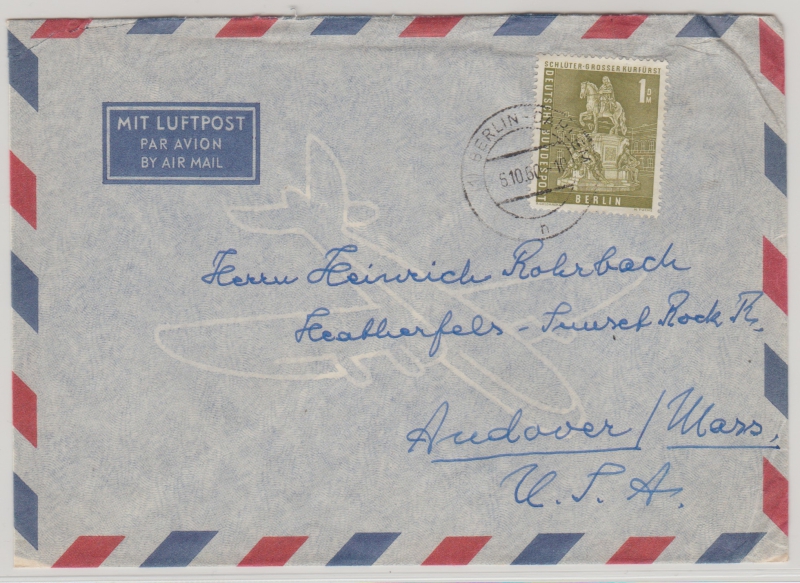 MIT LUFTPOST
PAR AVION
BY AIR MAIL
SCHLÜTER-GROSSER KURFÜRST
1 DM
DEUTSCHE BUNDESPOST
BERLIN
BERLIN-
6.10.60
n
Herrn Heinrich Rohrbach
Heatherfels - Sunset Rock R.
Andover / Mass.
U.S.A.